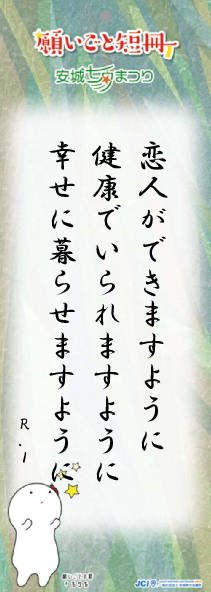 願いごと短冊
安城七夕まつり
恋人ができますように
健康でいられますように
幸せに暮らせますように
R.I
JCI